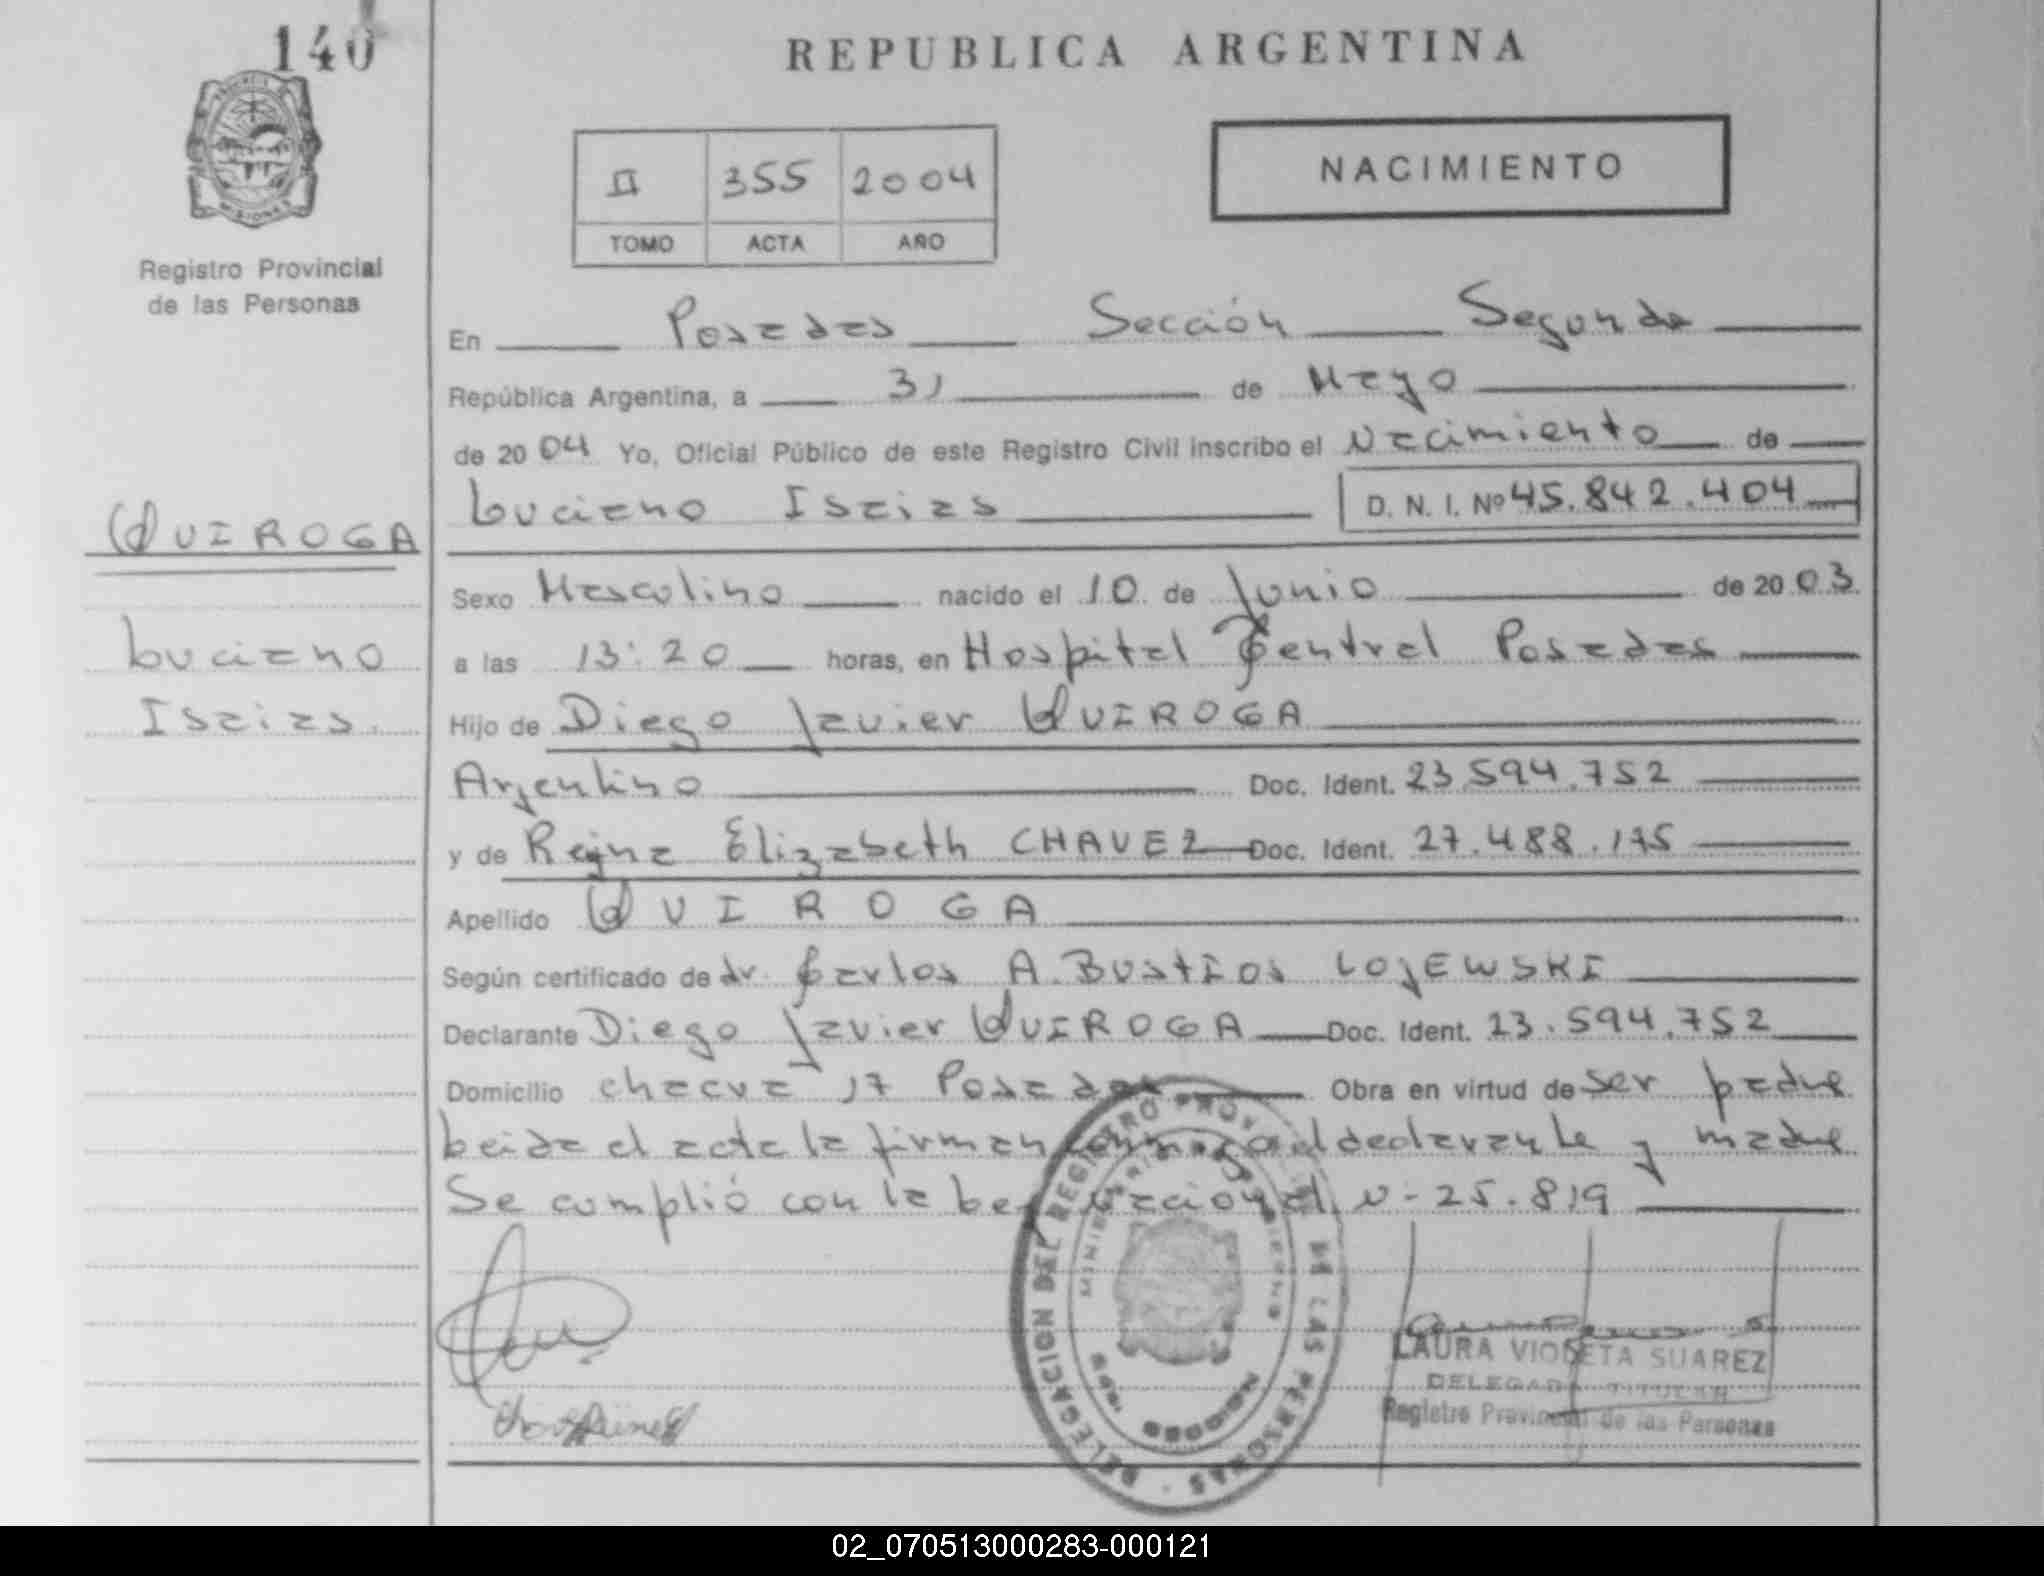 140
REPUBLICA ARGENTINA
II 355 2004
TOMO ACTA AÑO
NACIMIENTO
MISIONES
Registro Provincial
de las Personas
En Posadas Sección Segunda
República Argentina, a 31 de Mayo
de 2004 Yo, Oficial Público de este Registro Civil inscribo el Nacimiento de
Luciano Isaias D. N. I. Nº 45.842.404
QUIROGA
Sexo Masculino nacido el 10 de Junio de 2003
Luciano
a las 13:20 horas, en Hospital Central Posadas
Isaias.
Hijo de Diego Javier QUIROGA
Argentino Doc. Ident. 23.594.752
y de Reyna Elizabeth CHAVEZ Doc. Ident. 27.488.175
Apellido QUIROGA
Según certificado de dr. Carlos A. Bustios LOJEWSKI
Declarante Diego Javier QUIROGA Doc. Ident. 23.594.752
Domicilio chacra 17 Posadas Obra en virtud de ser padre
Leida el acta la firman conmigo el declarante y madre
Se cumplió con la Ley Nacional N- 25.819
DELEGACION DEL REGISTRO PROVINCIAL DE LAS PERSONAS
POSADAS
LAURA VIOLETA SUAREZ
DELEGADA TITULAR
Registro Provincial de las Personas
02_070513000283-000121